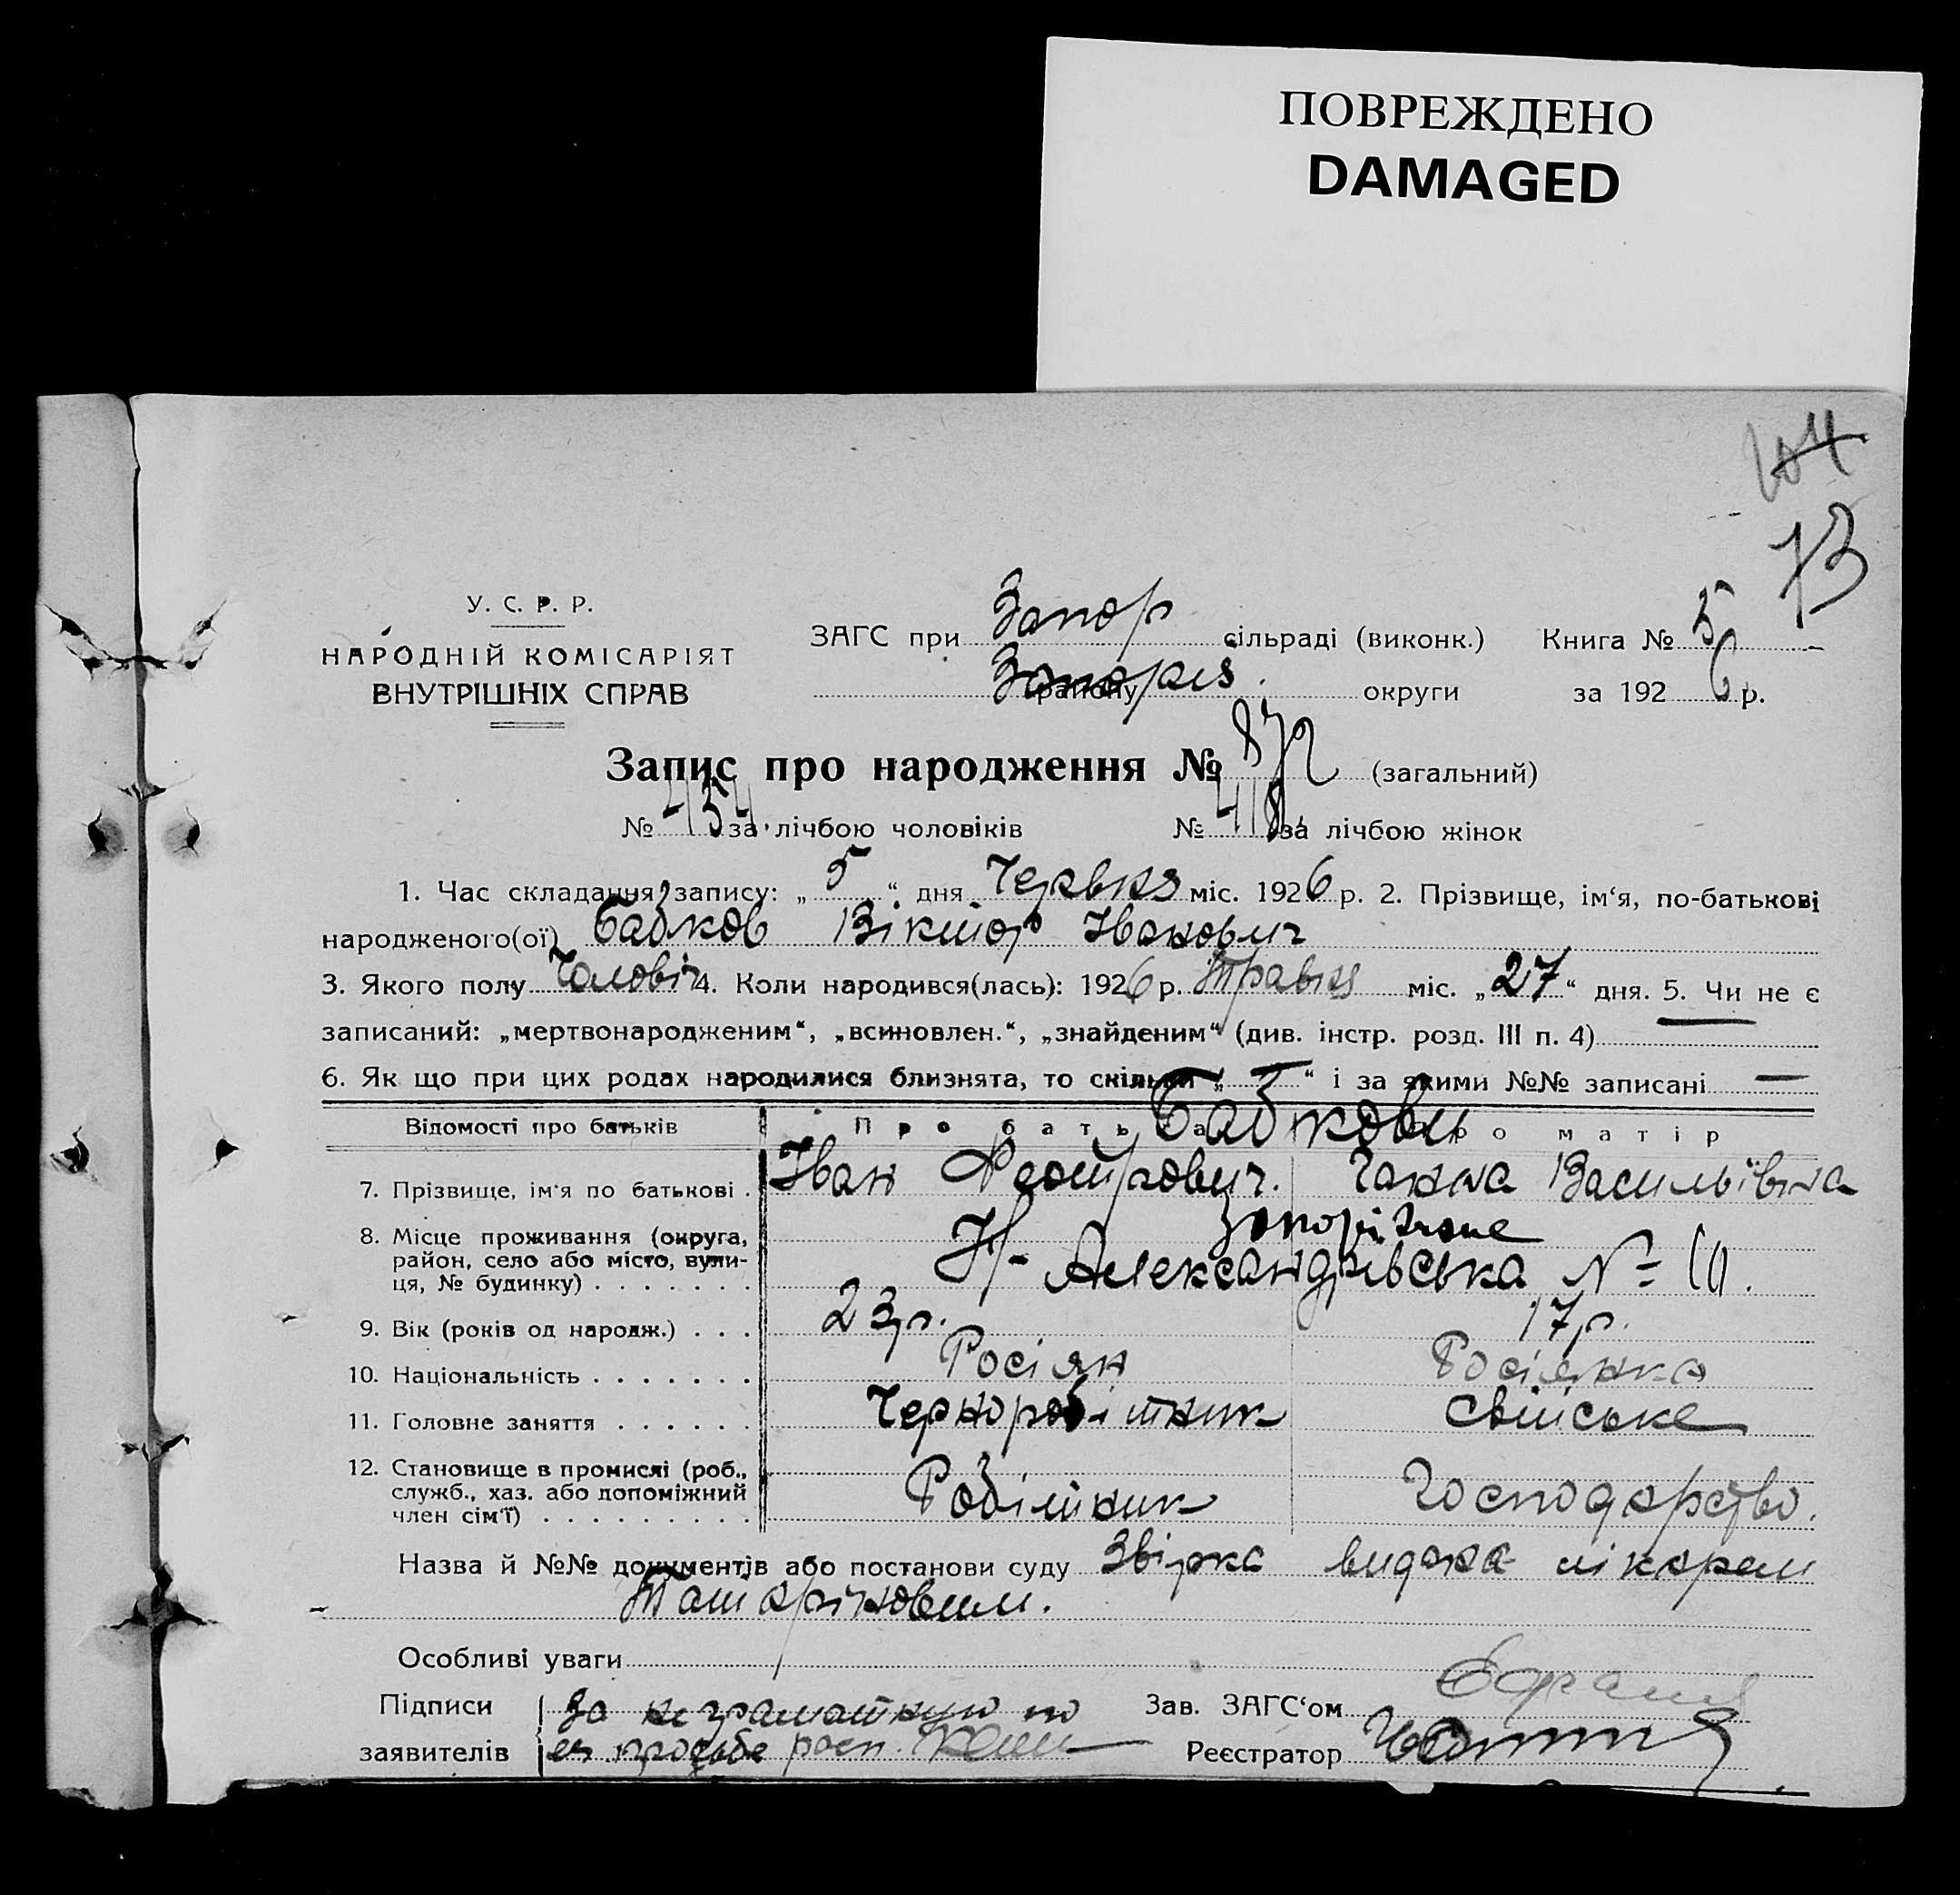 ПОВРЕЖДЕНО
DAMAGED
73
У. С. Р. Р.
НАРОДНІЙ КОМІСАРІЯТ
ВНУТРІШНІХ СПРАВ
ЗАГС при Запор сільраді (виконк.) Книга № 5
району Запоріз. округи за 1926 р.
Запис про народження № 872 (загальний)
№ 454 за лічбою чоловіків № 418 за лічбою жінок
1. Час складання запису: „5“ дня Червня міс. 1926 р. 2. Прізвище, ім‘я, по-батькові
народженого(ої) Бабков Віктор Іванович
3. Якого полу Чоловіч 4. Коли народився(лась): 1926 р. Травня міс. „27“ дня. 5. Чи не є
записаний: „мертвонародженим“, „всиновлен.“, „знайденим“ (див. інстр. розд. III п. 4)
6. Як що при цих родах народилися близнята, то скільки „—“ і за якими №№ записані —
Відомості про батьків Про батька Про матір
Бабкови
7. Прізвище, ім‘я по батькові . Іван Дмитрович. Ганна Васильівна
8. Місце проживання (округа, район, село або місто, вули-ця, № будинку) . . . . . . . Запоріжже
Н-Александрівська №
9. Вік (років од народж.) . . . 23 р. 17 р.
10. Національність . . . . . . . Росіян Росіянка
11. Головне заняття . . . . . . Чернеробітник Свійське
12. Становище в промислі (роб., служб., хаз. або допоміжний член сім‘ї) . . . . . . . . . Робітник Господарство.
Назва й №№ документів або постанови суду Звірка видана лікарем
Особливі уваги
Підписи За неграматную по Зав. ЗАГС‘ом
заявителів ея просьбе росп. Реєстратор